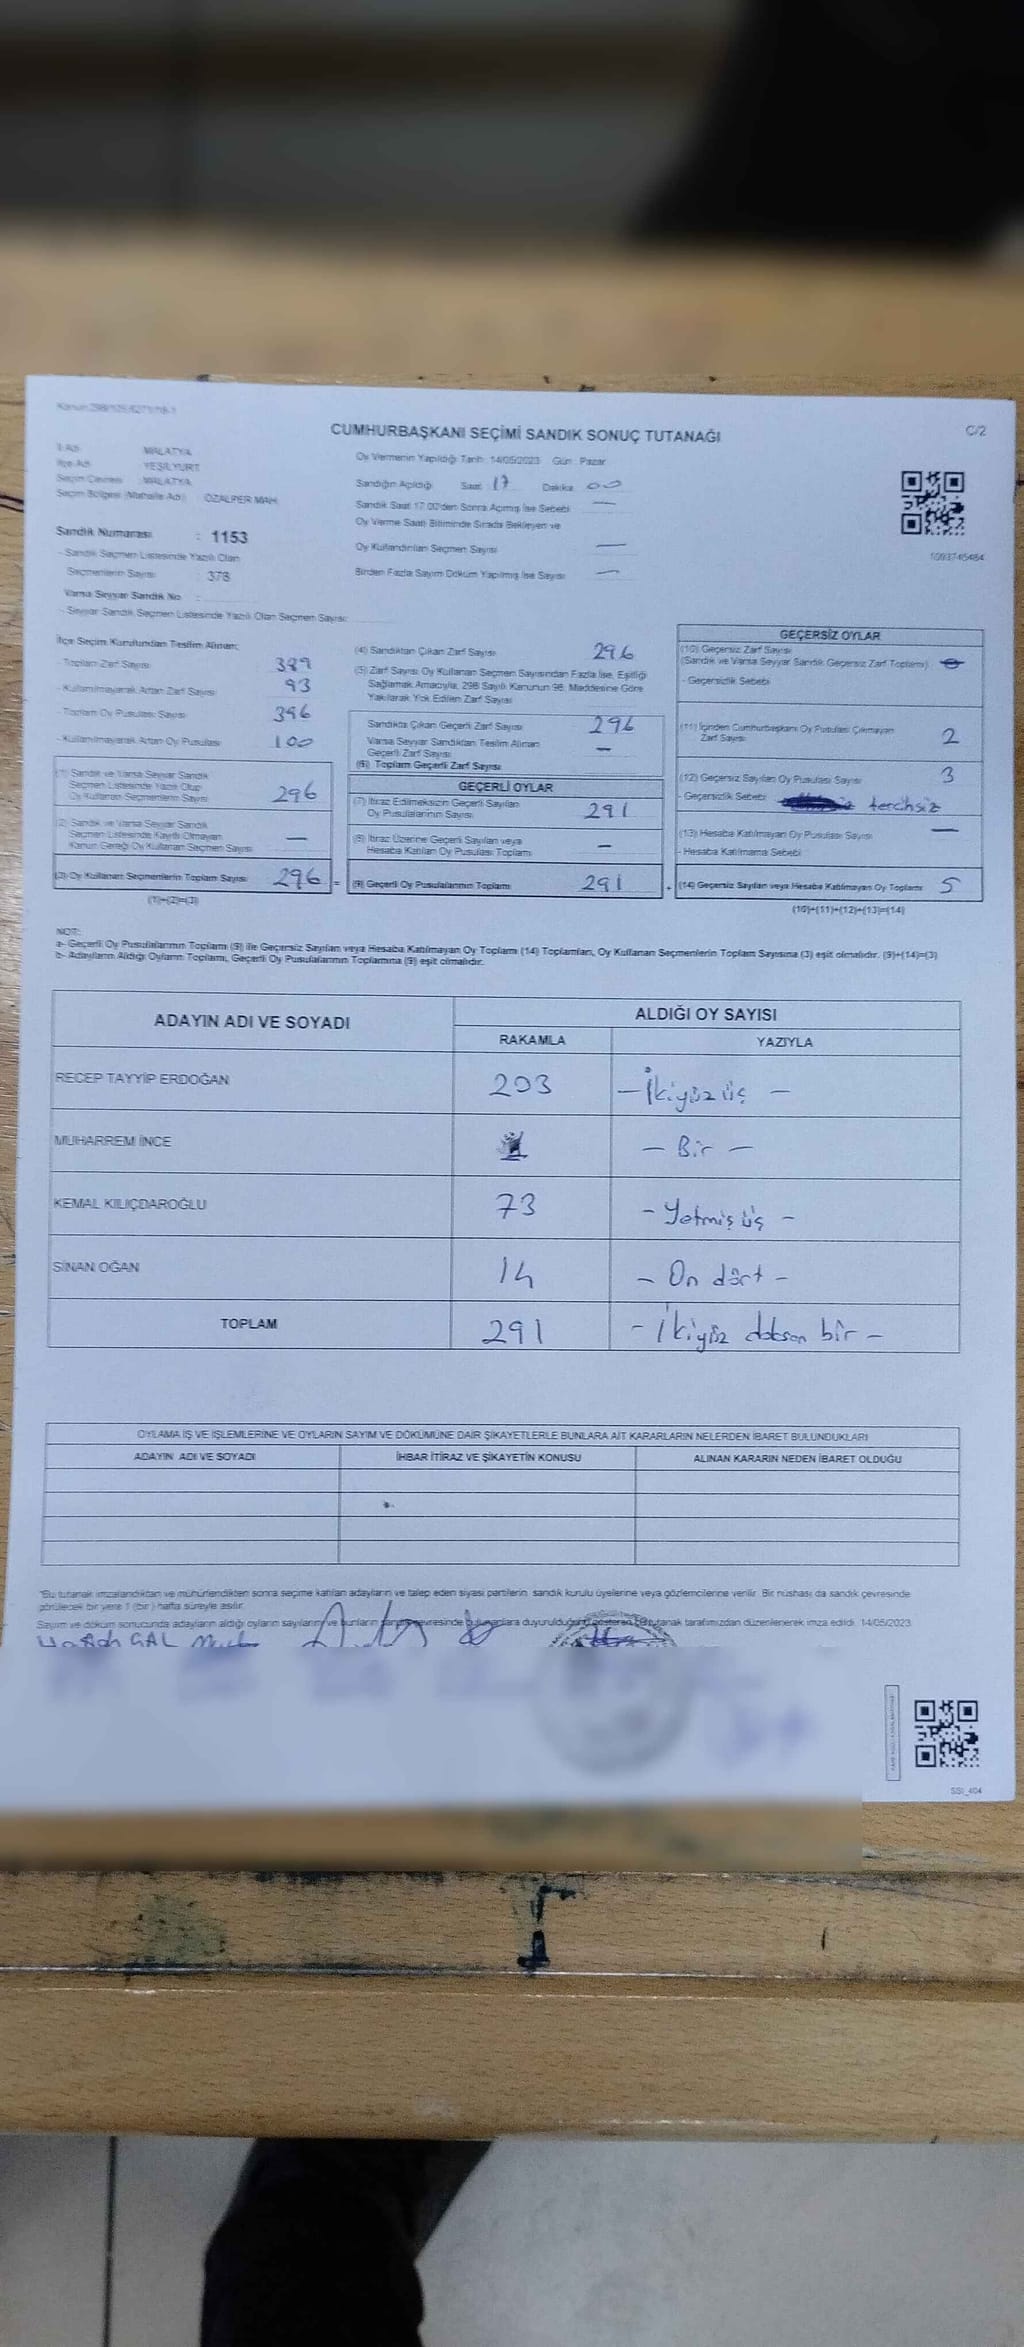 Kanun:298/105,6271/18-1
CUMHURBAŞKANI SEÇİMİ SANDIK SONUÇ TUTANAĞI
C/2
İl Adı : MALATYA
İlçe Adı : YEŞİLYURT
Seçim Çevresi : MALATYA
Seçim Bölgesi (Mahalle Adı) : ÖZALPER MAH.
Oy Vermenin Yapıldığı Tarih : 14/05/2023 Gün : Pazar
Sandığın Açıldığı Saat : 17 Dakika : 00
Sandık Saat 17.00'den Sonra Açılmış İse Sebebi : —
Oy Verme Saati Bitiminde Sırada Bekleyen ve
Oy Kullandırılan Seçmen Sayısı : —
Birden Fazla Sayım Döküm Yapılmış İse Sayısı : —
Sandık Numarası : 1153
- Sandık Seçmen Listesinde Yazılı Olan
Seçmenlerin Sayısı : 378
Varsa Seyyar Sandık No :
- Seyyar Sandık Seçmen Listesinde Yazılı Olan Seçmen Sayısı:
İlçe Seçim Kurulundan Teslim Alınan;
- Toplam Zarf Sayısı 389
- Kullanılmayarak Artan Zarf Sayısı 93
- Toplam Oy Pusulası Sayısı 396
- Kullanılmayarak Artan Oy Pusulası 100
(1) Sandık ve Varsa Seyyar Sandık
Seçmen Listesinde Yazılı Olup
Oy Kullanan Seçmenlerin Sayısı 296
(2) Sandık ve Varsa Seyyar Sandık
Seçmen Listesinde Kayıtlı Olmayan
Kanun Gereği Oy Kullanan Seçmen Sayısı —
(3) Oy Kullanan Seçmenlerin Toplam Sayısı 296 =
(1)+(2)=(3)
(4) Sandıktan Çıkan Zarf Sayısı 296
(5) Zarf Sayısı Oy Kullanan Seçmen Sayısından Fazla İse, Eşitliği
Sağlamak Amacıyla, 298 Sayılı Kanunun 98. Maddesine Göre
Yakılarak Yok Edilen Zarf Sayısı
Sandıkta Çıkan Geçerli Zarf Sayısı 296
Varsa Seyyar Sandıktan Teslim Alınan
Geçerli Zarf Sayısı —
(6) Toplam Geçerli Zarf Sayısı
GEÇERLİ OYLAR
(7) İtiraz Edilmeksizin Geçerli Sayılan
Oy Pusulalarının Sayısı 291
(8) İtiraz Üzerine Geçerli Sayılan veya
Hesaba Katılan Oy Pusulası Toplamı —
(9) Geçerli Oy Pusulalarının Toplamı 291 +
GEÇERSİZ OYLAR
(10) Geçersiz Zarf Sayısı
(Sandık ve Varsa Seyyar Sandık Geçersiz Zarf Toplamı)
- Geçersizlik Sebebi
(11) İçinden Cumhurbaşkanı Oy Pusulası Çıkmayan
Zarf Sayısı 2
(12) Geçersiz Sayılan Oy Pusulası Sayısı 3
- Geçersizlik Sebebi tercihsiz
(13) Hesaba Katılmayan Oy Pusulası Sayısı —
- Hesaba Katılmama Sebebi
(14) Geçersiz Sayılan veya Hesaba Katılmayan Oy Toplamı 5
(10)+(11)+(12)+(13)=(14)
NOT:
a- Geçerli Oy Pusulalarının Toplamı (9) ile Geçersiz Sayılan veya Hesaba Katılmayan Oy Toplamı (14) Toplamları, Oy Kullanan Seçmenlerin Toplam Sayısına (3) eşit olmalıdır. (9)+(14)=(3)
b- Adayların Aldığı Oyların Toplamı, Geçerli Oy Pusulalarının Toplamına (9) eşit olmalıdır.
ADAYIN ADI VE SOYADI
ALDIĞI OY SAYISI
RAKAMLA YAZIYLA
RECEP TAYYİP ERDOĞAN 203 — İkiyüz üç —
MUHARREM İNCE 1 — Bir —
KEMAL KILIÇDAROĞLU 73 - Yetmiş üç -
SİNAN OĞAN 14 - On dört -
TOPLAM 291 - İkiyüz doksan bir -
OYLAMA İŞ VE İŞLEMLERİNE VE OYLARIN SAYIM VE DÖKÜMÜNE DAİR ŞİKAYETLERLE BUNLARA AİT KARARLARIN NELERDEN İBARET BULUNDUKLARI
ADAYIN ADI VE SOYADI İHBAR İTİRAZ VE ŞİKAYETİN KONUSU ALINAN KARARIN NEDEN İBARET OLDUĞU
*Bu tutanak imzalandıktan ve mühürlendikten sonra seçime katılan adayların ve talep eden siyasi partilerin, sandık kurulu üyelerine veya gözlemcilerine verilir. Bir nüshası da sandık çevresinde
görülecek bir yere 1 (bir) hafta süreyle asılır.
Sayım ve döküm sonucunda adayların aldığı oyların sayılarını ve bunların sandık çevresinde bulunanlara duyurulduğunu gösteren bu tutanak tarafımızdan düzenlenerek imza edildi. 14/05/2023
SSI_404